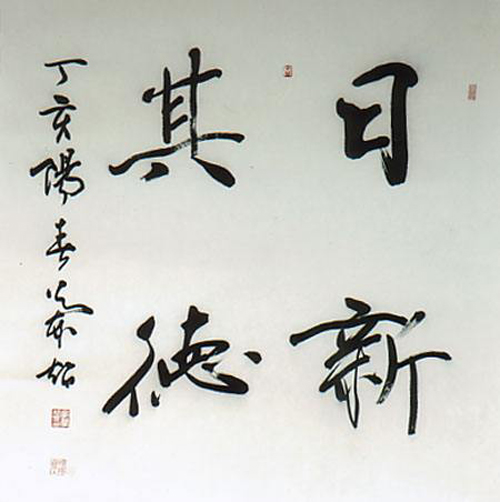 日新
其德
丁亥陽春